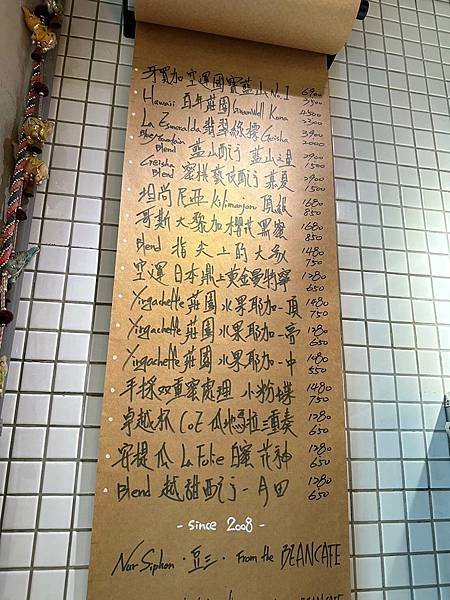 牙買加 空運國寶藍山No.1 6900 3500
Hawaii 百年莊園 Greenwell Kona 4500 2300
La Esmeralda 翡翠綠標 Geisha 3900 2000
Blue Mountain Blend 藍山配方 藍山之星 2900 1500
Geisha Blend 蜜桃藝伎配方 慕夏 2900 1500
坦尚尼亞 Kilimanjaro 頂級 1680 850
哥斯大黎加 櫻花黑蜜 1680 850
Blend 指尖上的大象 1480 750
空運日本鼎上黃金曼特寧 1280 650
Yirgacheffe 莊園水果耶加-頂 1480 750
Yirgacheffe 莊園水果耶加-高 1280 650
Yirgacheffe 莊園水果耶加-中 550
手採双重蜜處理 小粉蝶 1480 750
卓越杯 CoE 瓜地馬拉三重奏 1280 650
安提瓜 La Folie 白蜜花神 1280 650
Blend 越甜配方- 1280 650
- since 2008 -
Nor Siphon · 豆三 · From the BEANCAFE